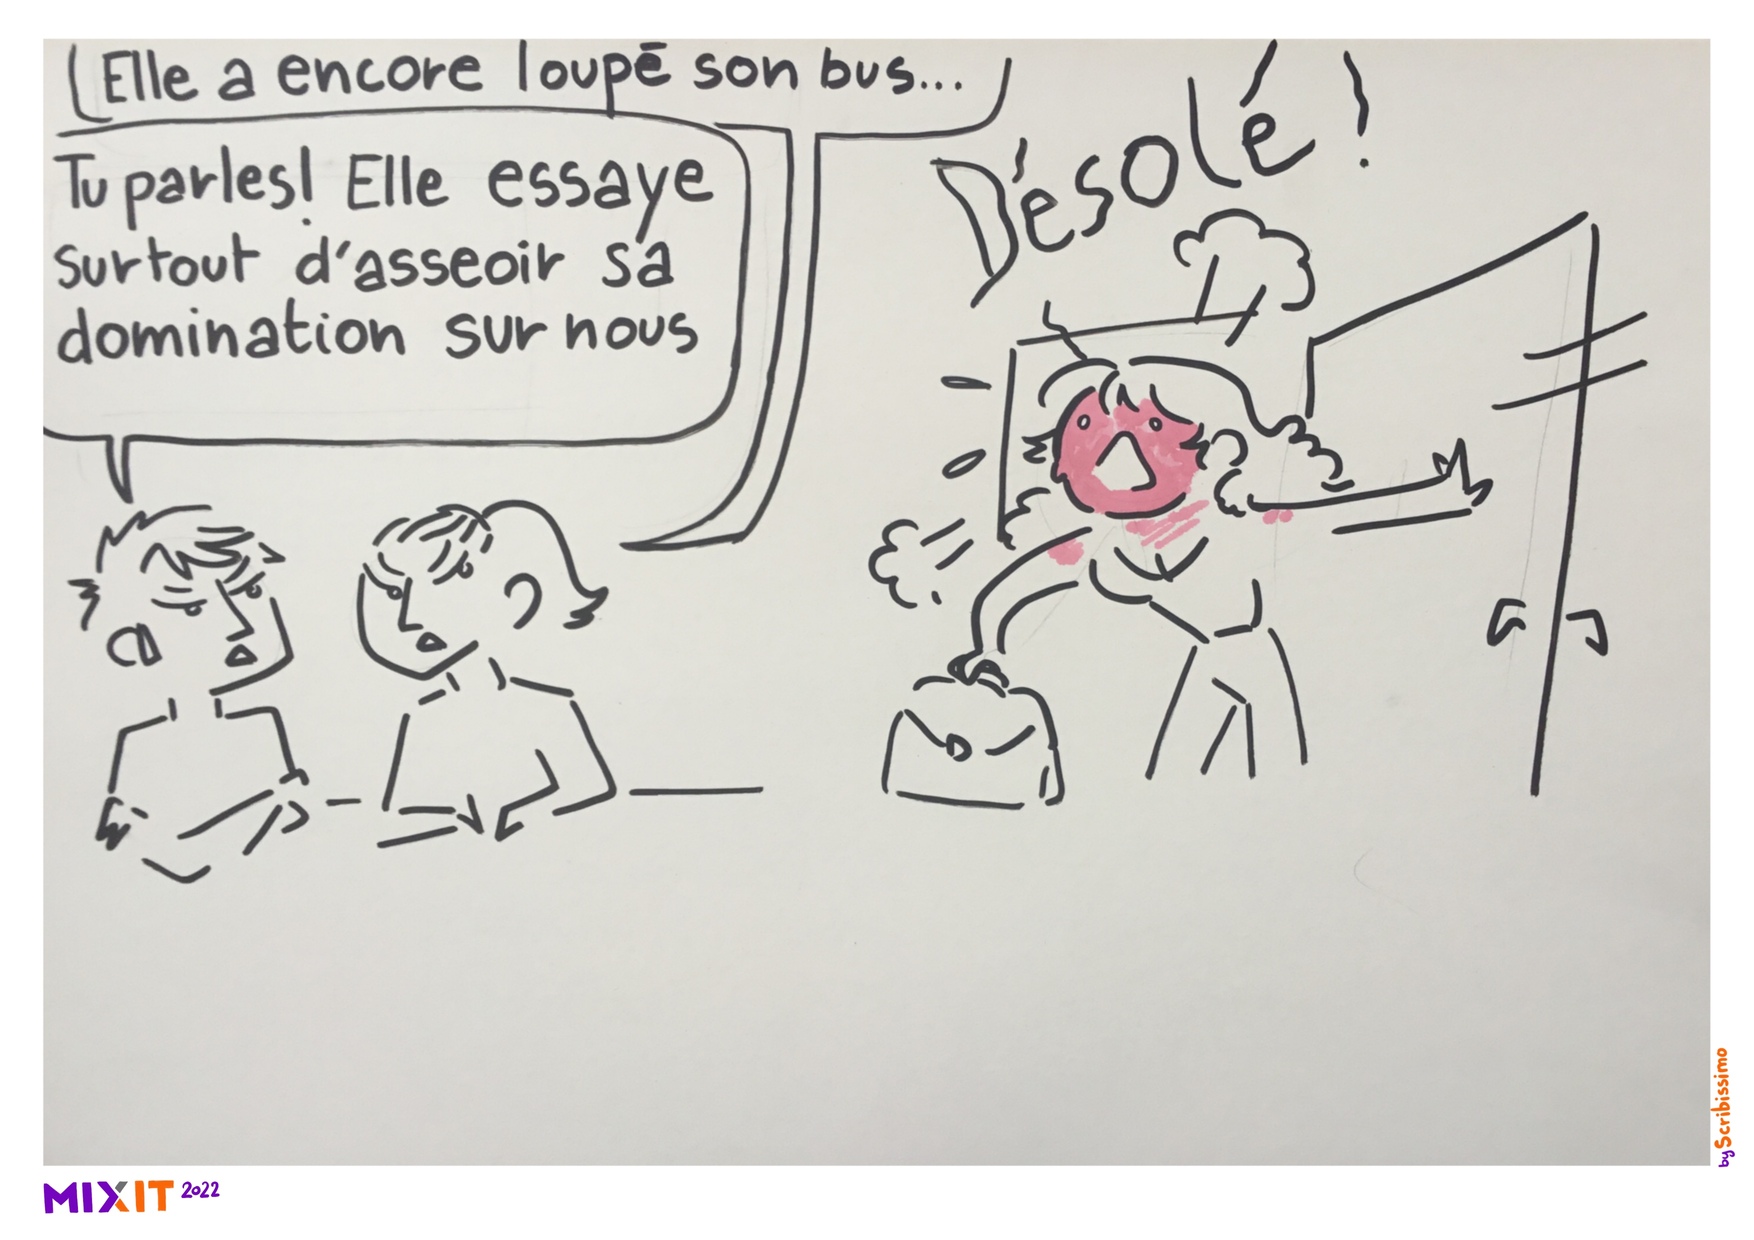 Elle a encore loupé son bus...
Tu parles! Elle essaye
surtout d'asseoir sa
domination sur nous
Désolé!
MIXIT 2022
by Scribissimo